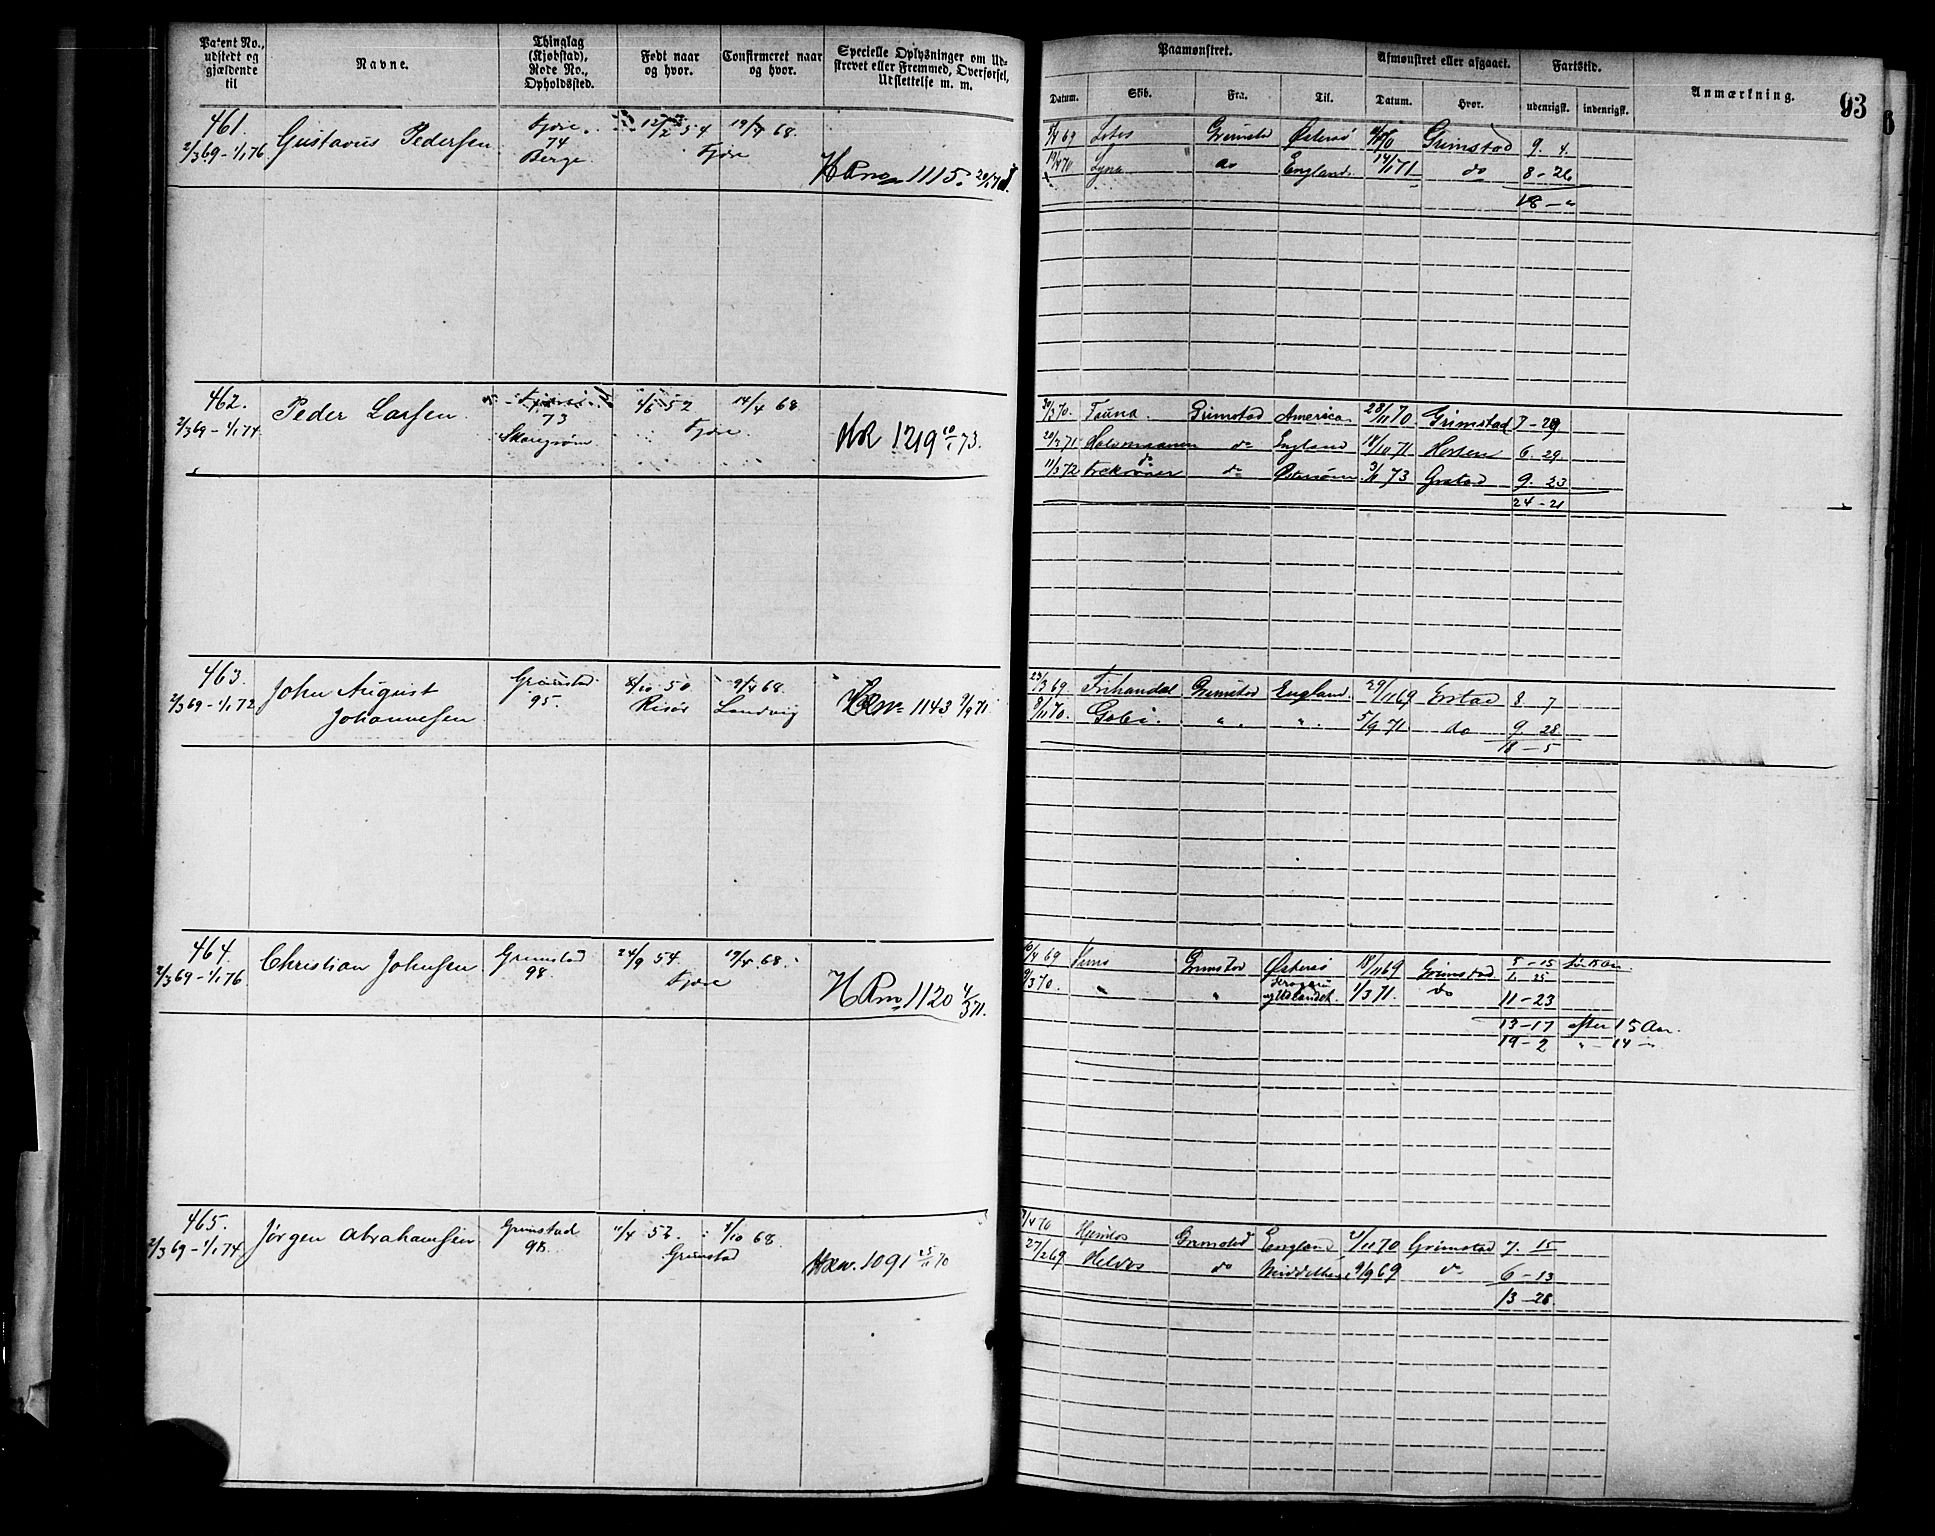 Patent No., udstedt og gjældende til
Navne.
Thinglag (Kjøbstad), Rode No., Opholdssted.
Født naar og hvor.
Confirmeret naar og hvor.
Specielle Oplysninger om Udskrevet eller Fremmed, Overførsel, Udslettelse m. m.
Paamønstret.
Datum.
Skib.
Fra.
Til.
Afmønstret eller afgaaet.
Datum.
Hvor.
Fartstid.
udenrigsk.
indenrigsk.
Anmærkning.
93
461.
2/3 69 - 1/1 76
Gustavus Pedersen
Fjære
74
Berge
12/2 54
19/4 68.
Fjære
1115.
69
Grimstad
Østersø
Grimstad
9. 4.
do
England.
14/1 71
do
8 - 26
18 - "
462.
2/3 69 - 1/1 74
Peder Larsen
73
1/6 52
14/4 68
Fjære
1219 10/1 73.
30/3 70.
Fauna.
Grimstad
America
28/11 70
Grimstad
7 - 29
do
England
18/10 71
6. 29
11/3 72
do
3/1 73
Grstad
9. 23
24 - 21
463.
2/3 69 - 1/1 72
John August
Johannesen
Grimstad
95.
8/10 50
Risør
9/4 68.
Landvig
1143 9/9 71
23/3 69
Frihandel
Grimstad
England
29/11 69
8 7
8/11 70.
Gobi.
" .
" .
5/9 71
do
9. 28
18 - 5
464.
2/3 69 - 1/1 76
Christian Johnsen
Grimstad
98.
24/9 54.
19/4 68.
Fjære
1120 4/3 71.
10/4 69
Grimstad
Østersø
18/11 69
Grimstad
5 - 15
1. 25
9/3 70.
"
"
1/3 71.
do
11 - 23
13 - 17 efter 15 Aar.
19 - 2 " - 14 -
465.
2/3 69 - 1/1 74
Jørgen Abrahamsen
Grimstad
98.
11/4 52
1/10 68.
Grimstad
1091 25/11 70
Grimstad
England
2/11 70
Grimstad
7. 15
27/2 69
do
9/9 69
do
6 - 13
13 - 28.